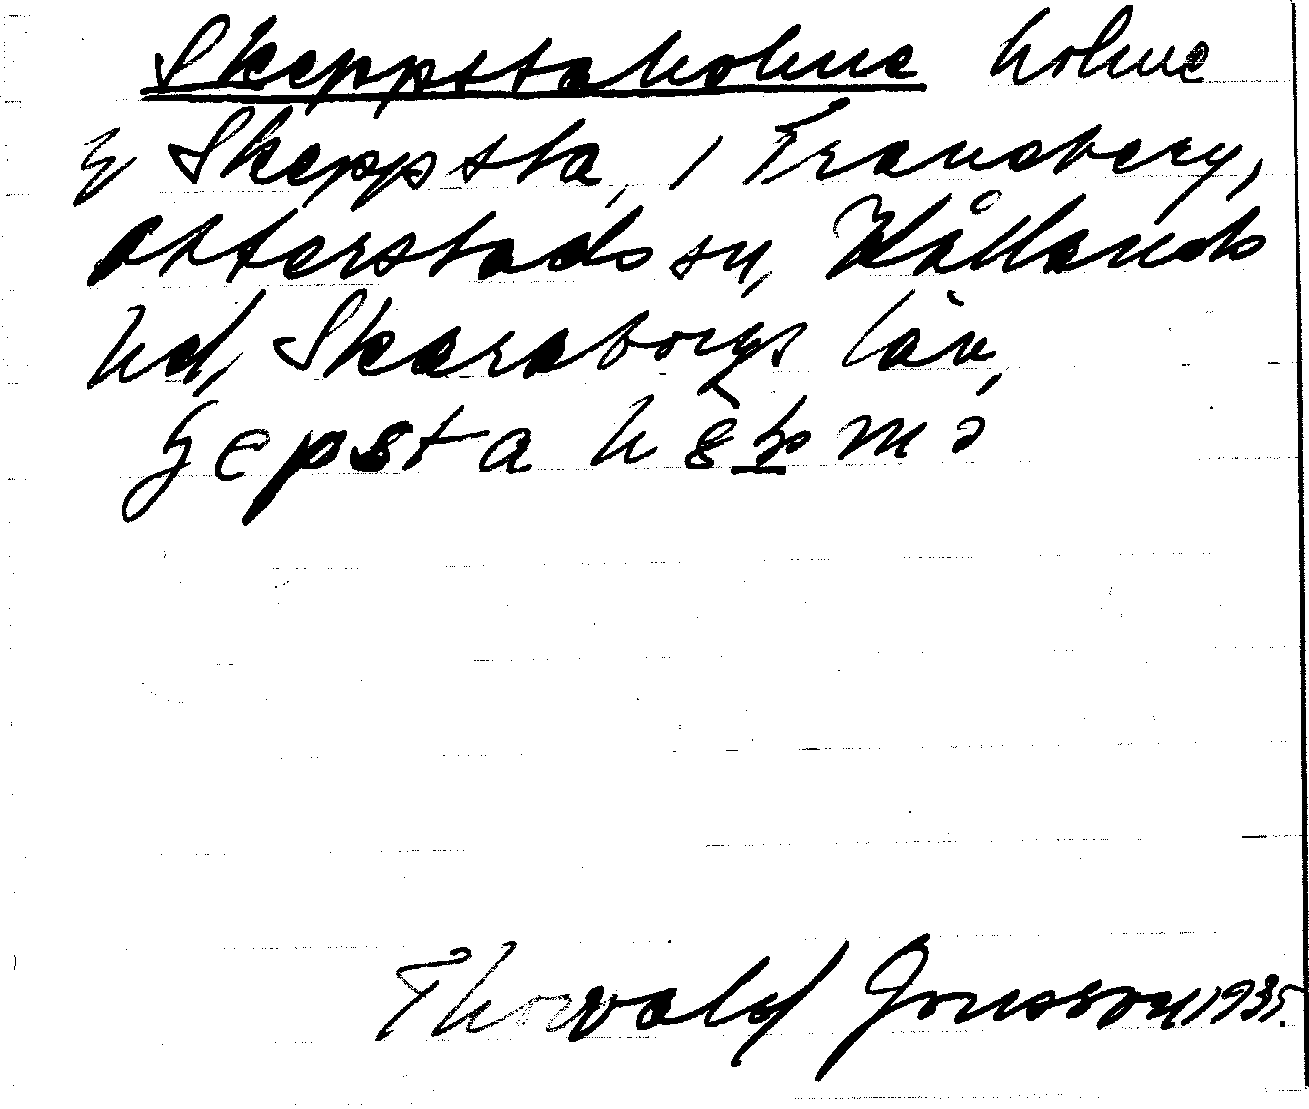 Skeppstaholme holme
y Skeppsta, i Traneberg,
Otterstads sn, Kållands
hd, Skaraborgs län,
Thorvald Jonsson 1935.